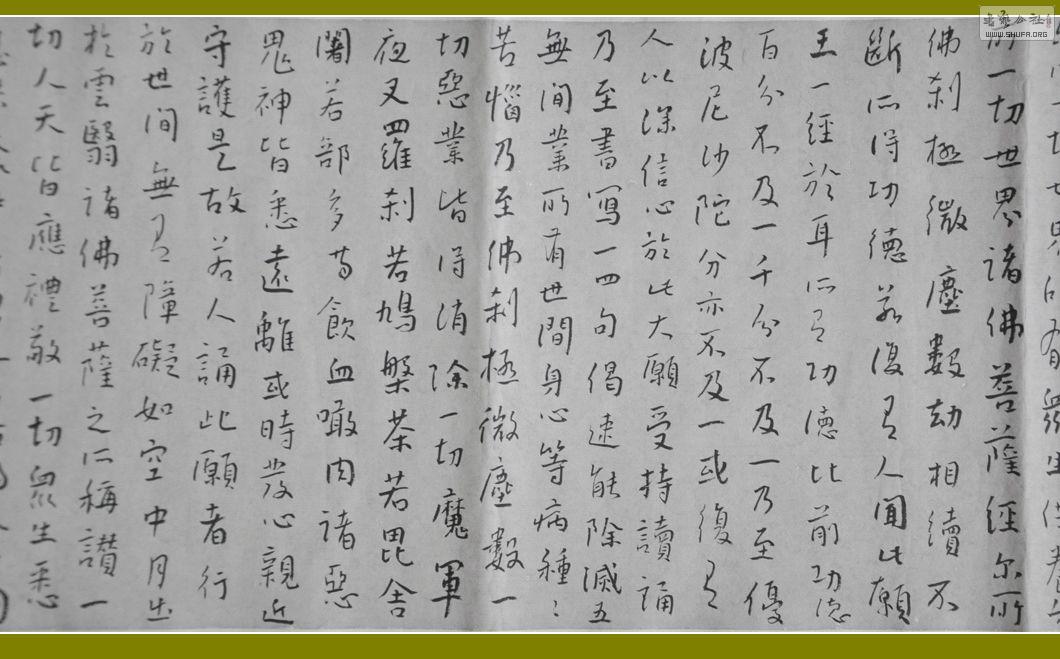 界所有眾生供養
前一切世界諸佛菩薩經尔所
佛剎極微塵數劫相續不
斷所得功德若復有人聞此願
王一經於耳所有功德比前功德
百分不及一千分不及一乃至優
波尼沙陀分亦不及一或復有
人以深信心於此大願受持讀誦
乃至書寫一四句偈速能除滅五
無間業所有世間身心等病種〻
苦惱乃至佛剎極微塵數一
切惡業皆得消除一切魔軍
夜叉羅剎若鳩槃荼若毘舍
闍若部多等飲血噉肉諸惡
鬼神皆悉遠離或時發心親近
守護是故若人誦此願者行
於世間無有障礙如空中月出
於雲翳諸佛菩薩之所稱讚一
切人天皆應禮敬一切眾生悉
WWW.SHUFA.ORG